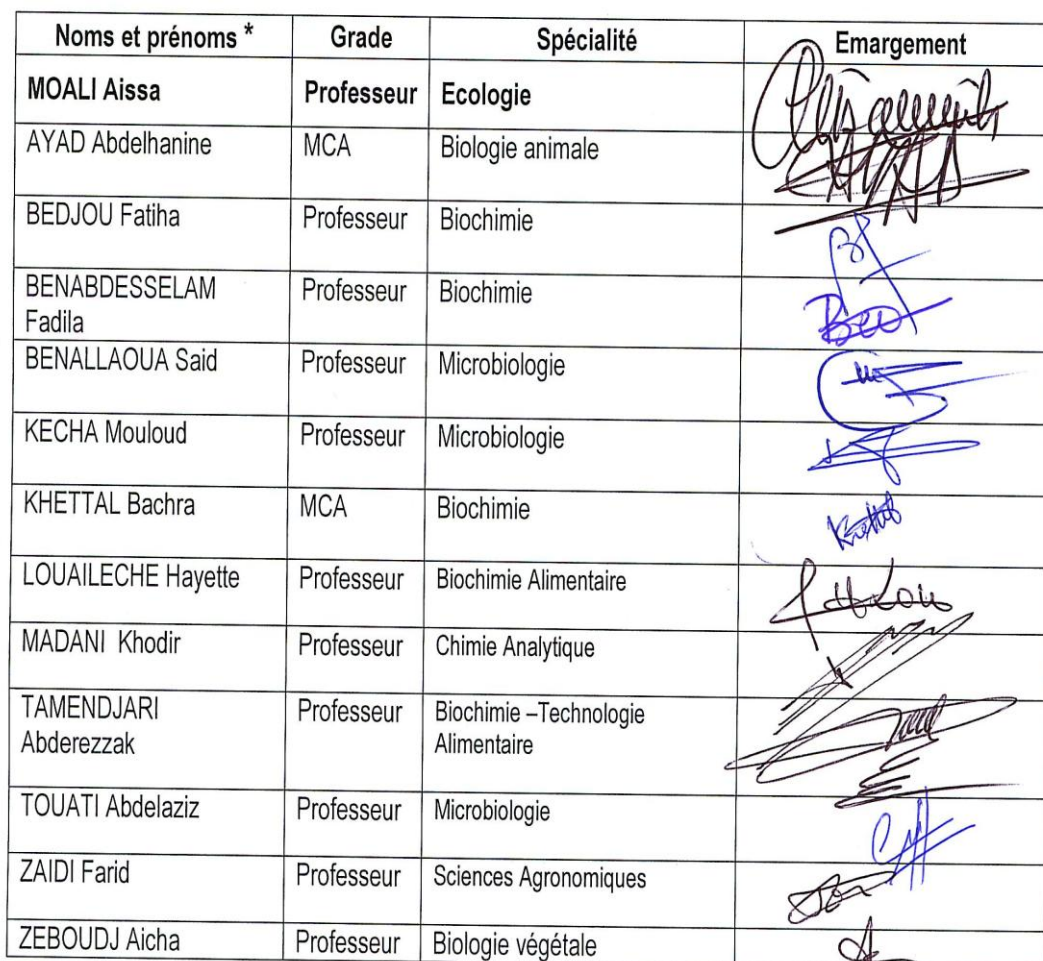 Noms et prénoms * Grade Spécialité Emargement
MOALI Aissa Professeur Ecologie
AYAD Abdelhanine MCA Biologie animale
BEDJOU Fatiha Professeur Biochimie
BENABDESSELAM Professeur Biochimie
Fadila
BENALLAOUA Said Professeur Microbiologie
KECHA Mouloud Professeur Microbiologie
KHETTAL Bachra MCA Biochimie
LOUAILECHE Hayette Professeur Biochimie Alimentaire
MADANI Khodir Professeur Chimie Analytique
TAMENDJARI Professeur Biochimie –Technologie
Abderezzak Alimentaire
TOUATI Abdelaziz Professeur Microbiologie
ZAIDI Farid Professeur Sciences Agronomiques
ZEBOUDJ Aicha Professeur Biologie végétale